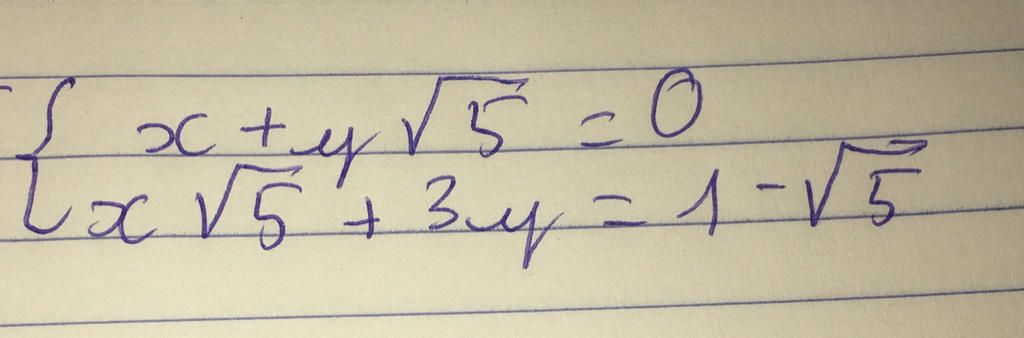 x + y√5 = 0
x√5 + 3y = 1 - √5